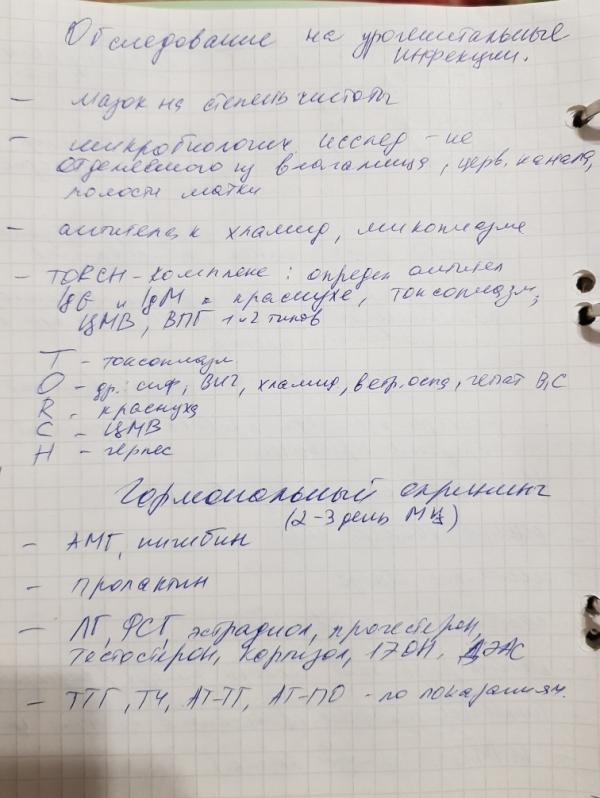 Обследование на урогенитальные
инфекции.
– мазок на степень чистоты
– микробиологич. исслед-ие
отделяемого из влагалища, церв. канала,
полости матки
– антитела к хламид, микоплазме
– TORCH-комплекс: определ антител
IgG и IgM к краснухе, токсоплазм,
ЦМВ, ВПГ 1 и 2 типов
T – токсоплазм
O – др.: сиф, ВИЧ, хламид, ветр. оспа, гепат В, С
R – краснуха
C – ЦМВ
H – герпес
Гормональный скрининг
(2-3 день МЦ)
– АМГ, ингибин
– Пролактин
– ЛГ, ФСГ, эстрадиол, прогестерон,
тестостерон, кортизол, 17ОН, ДЭАС
– ТТГ, Т4, АТ-ТГ, АТ-ПО – по показаниям.